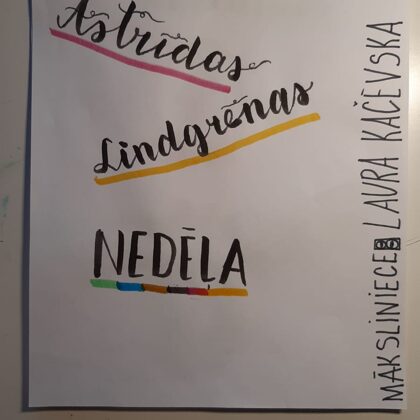 Astrīdas
Lindgrēnas
NEDĒĻA
MĀKSLINIECE: LAURA KAČĒVSKA